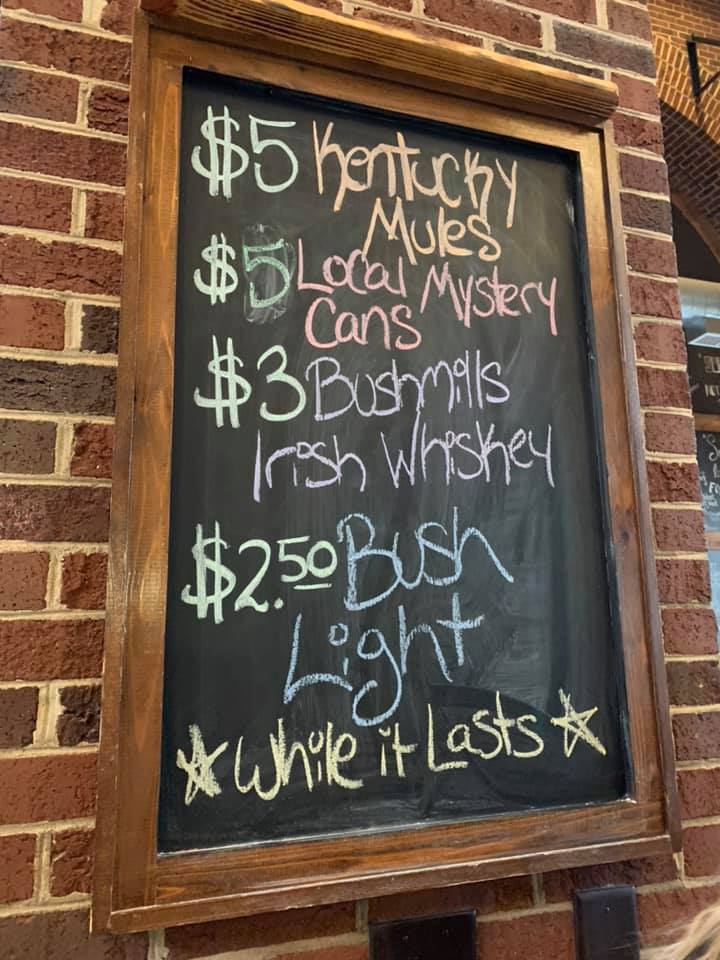 $5 Kentucky
Mules
$5 Local Mystery
Cans
$3 Bushmills
Irish Whiskey
$2.50 Bush
Light
While it Lasts